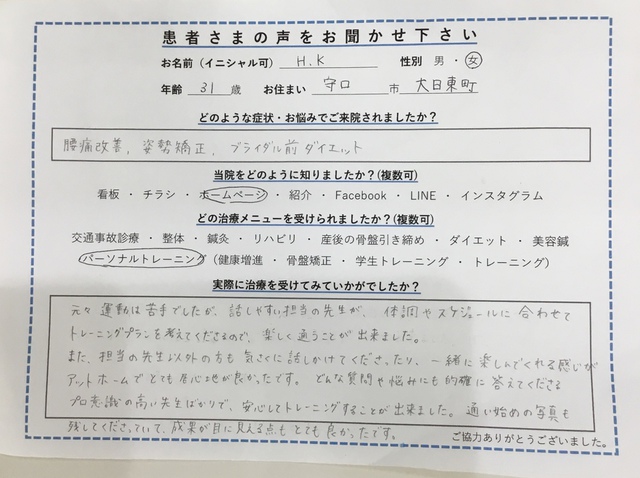 患者さまの声をお聞かせ下さい
お名前（イニシャル可） H.K 性別 男・女
年齢 31 歳 お住まい 守口 市 大日東町
どのような症状・お悩みでご来院されましたか？
腰痛改善, 姿勢矯正, ブライダル前ダイエット
当院をどのように知りましたか？(複数可)
看板・チラシ・ホームページ・紹介・Facebook・LINE・インスタグラム
どの治療メニューを受けられましたか？(複数可)
交通事故診療・整体・鍼灸・リハビリ・産後の骨盤引き締め・ダイエット・美容鍼
パーソナルトレーニング（健康増進・骨盤矯正・学生トレーニング・トレーニング）
実際に治療を受けてみていかがでしたか？
元々運動は苦手でしたが、話しやすい担当の先生が、体調やスケジュールに合わせて
トレーニングプランを考えてくださるので、楽しく通うことが出来ました。
また、担当の先生以外の方も気さくに話しかけてくださったり、一緒に楽しんでくれる感じが
アットホームでとても居心地が良かったです。どんな質問や悩みにも的確に答えてくださる
プロ意識の高い先生ばかりで、安心してトレーニングすることが出来ました。通い始めの写真も
残してくださっていて、成果が目に見える点もとても良かったです。
ご協力ありがとうございました。